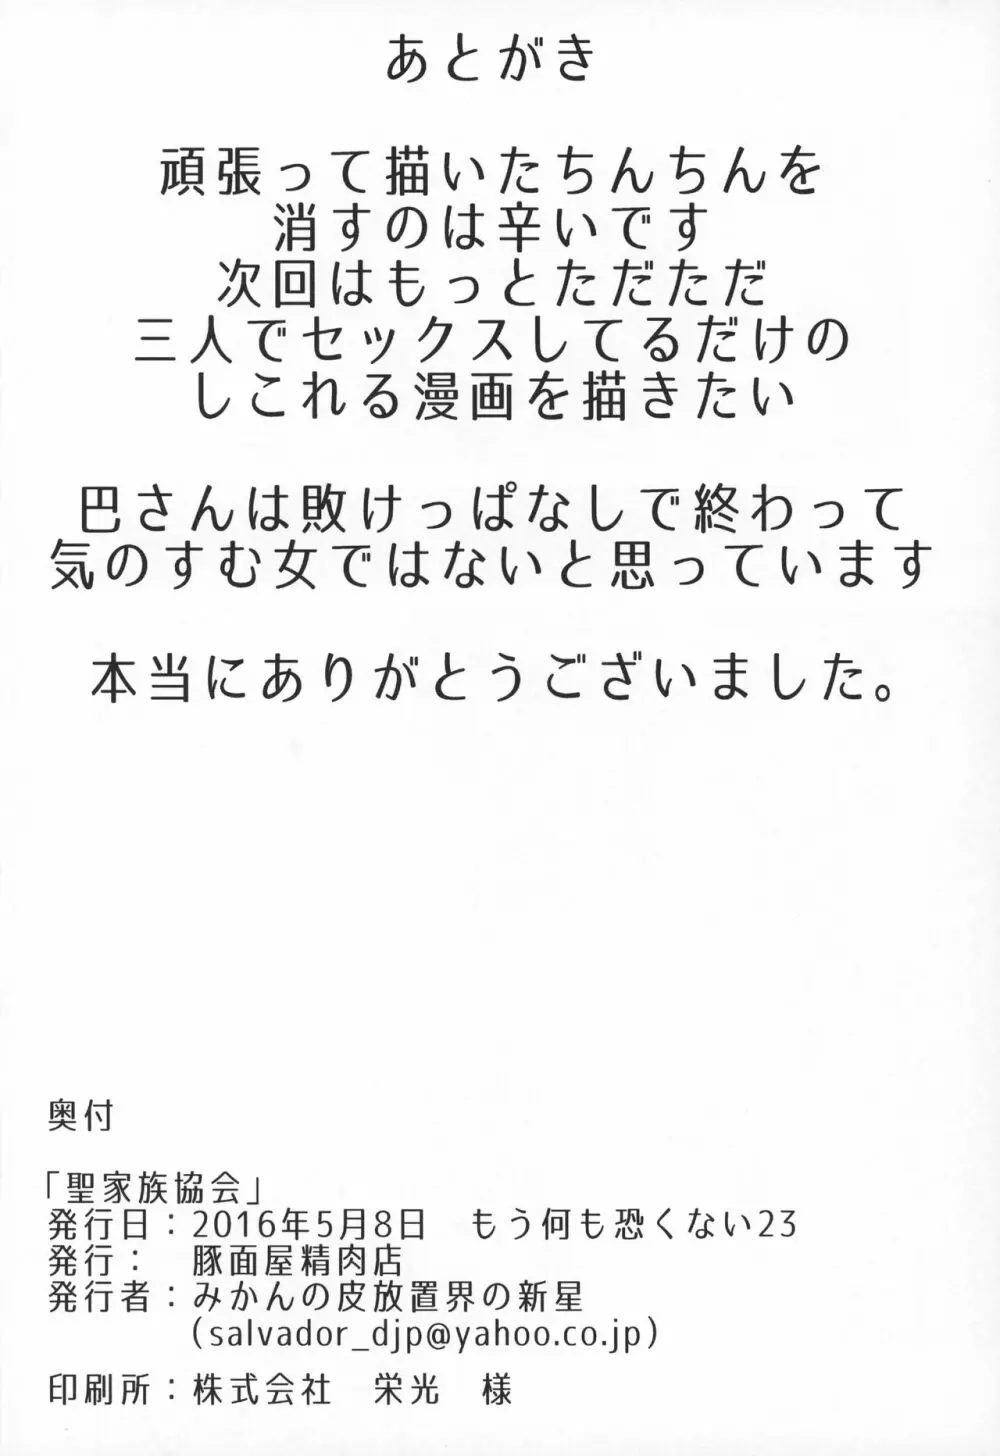 あとがき
頑張って描いたちんちんを
消すのは辛いです
次回はもっとただただ
三人でセックスしてるだけの
しこれる漫画を描きたい
巴さんは敗けっぱなしで終わって
気のすむ女ではないと思っています
本当にありがとうございました。
奥付
「聖家族協会」
発行日：2016年5月8日　もう何も恐くない23
発行：　豚面屋精肉店
発行者：みかんの皮放置界の新星
(salvador_djp@yahoo.co.jp)
印刷所：株式会社　栄光　様